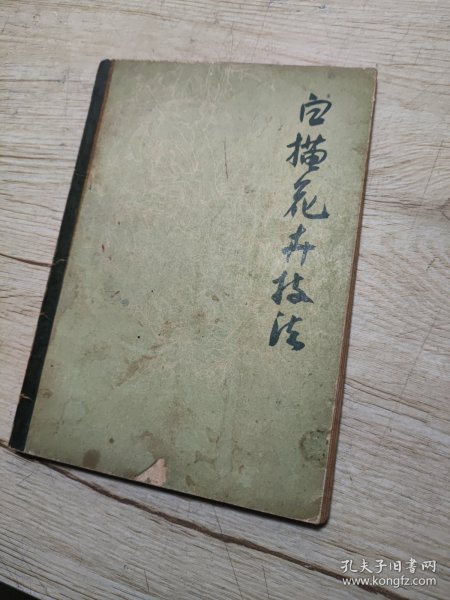 白描花卉技法
孔夫子旧书网
www.kongfz.com